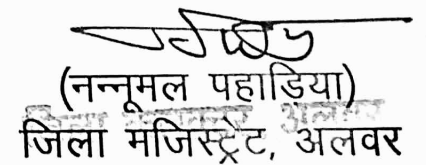 (नन्नूमल पहाड़िया)
जिला मजिस्ट्रेट, अलवर